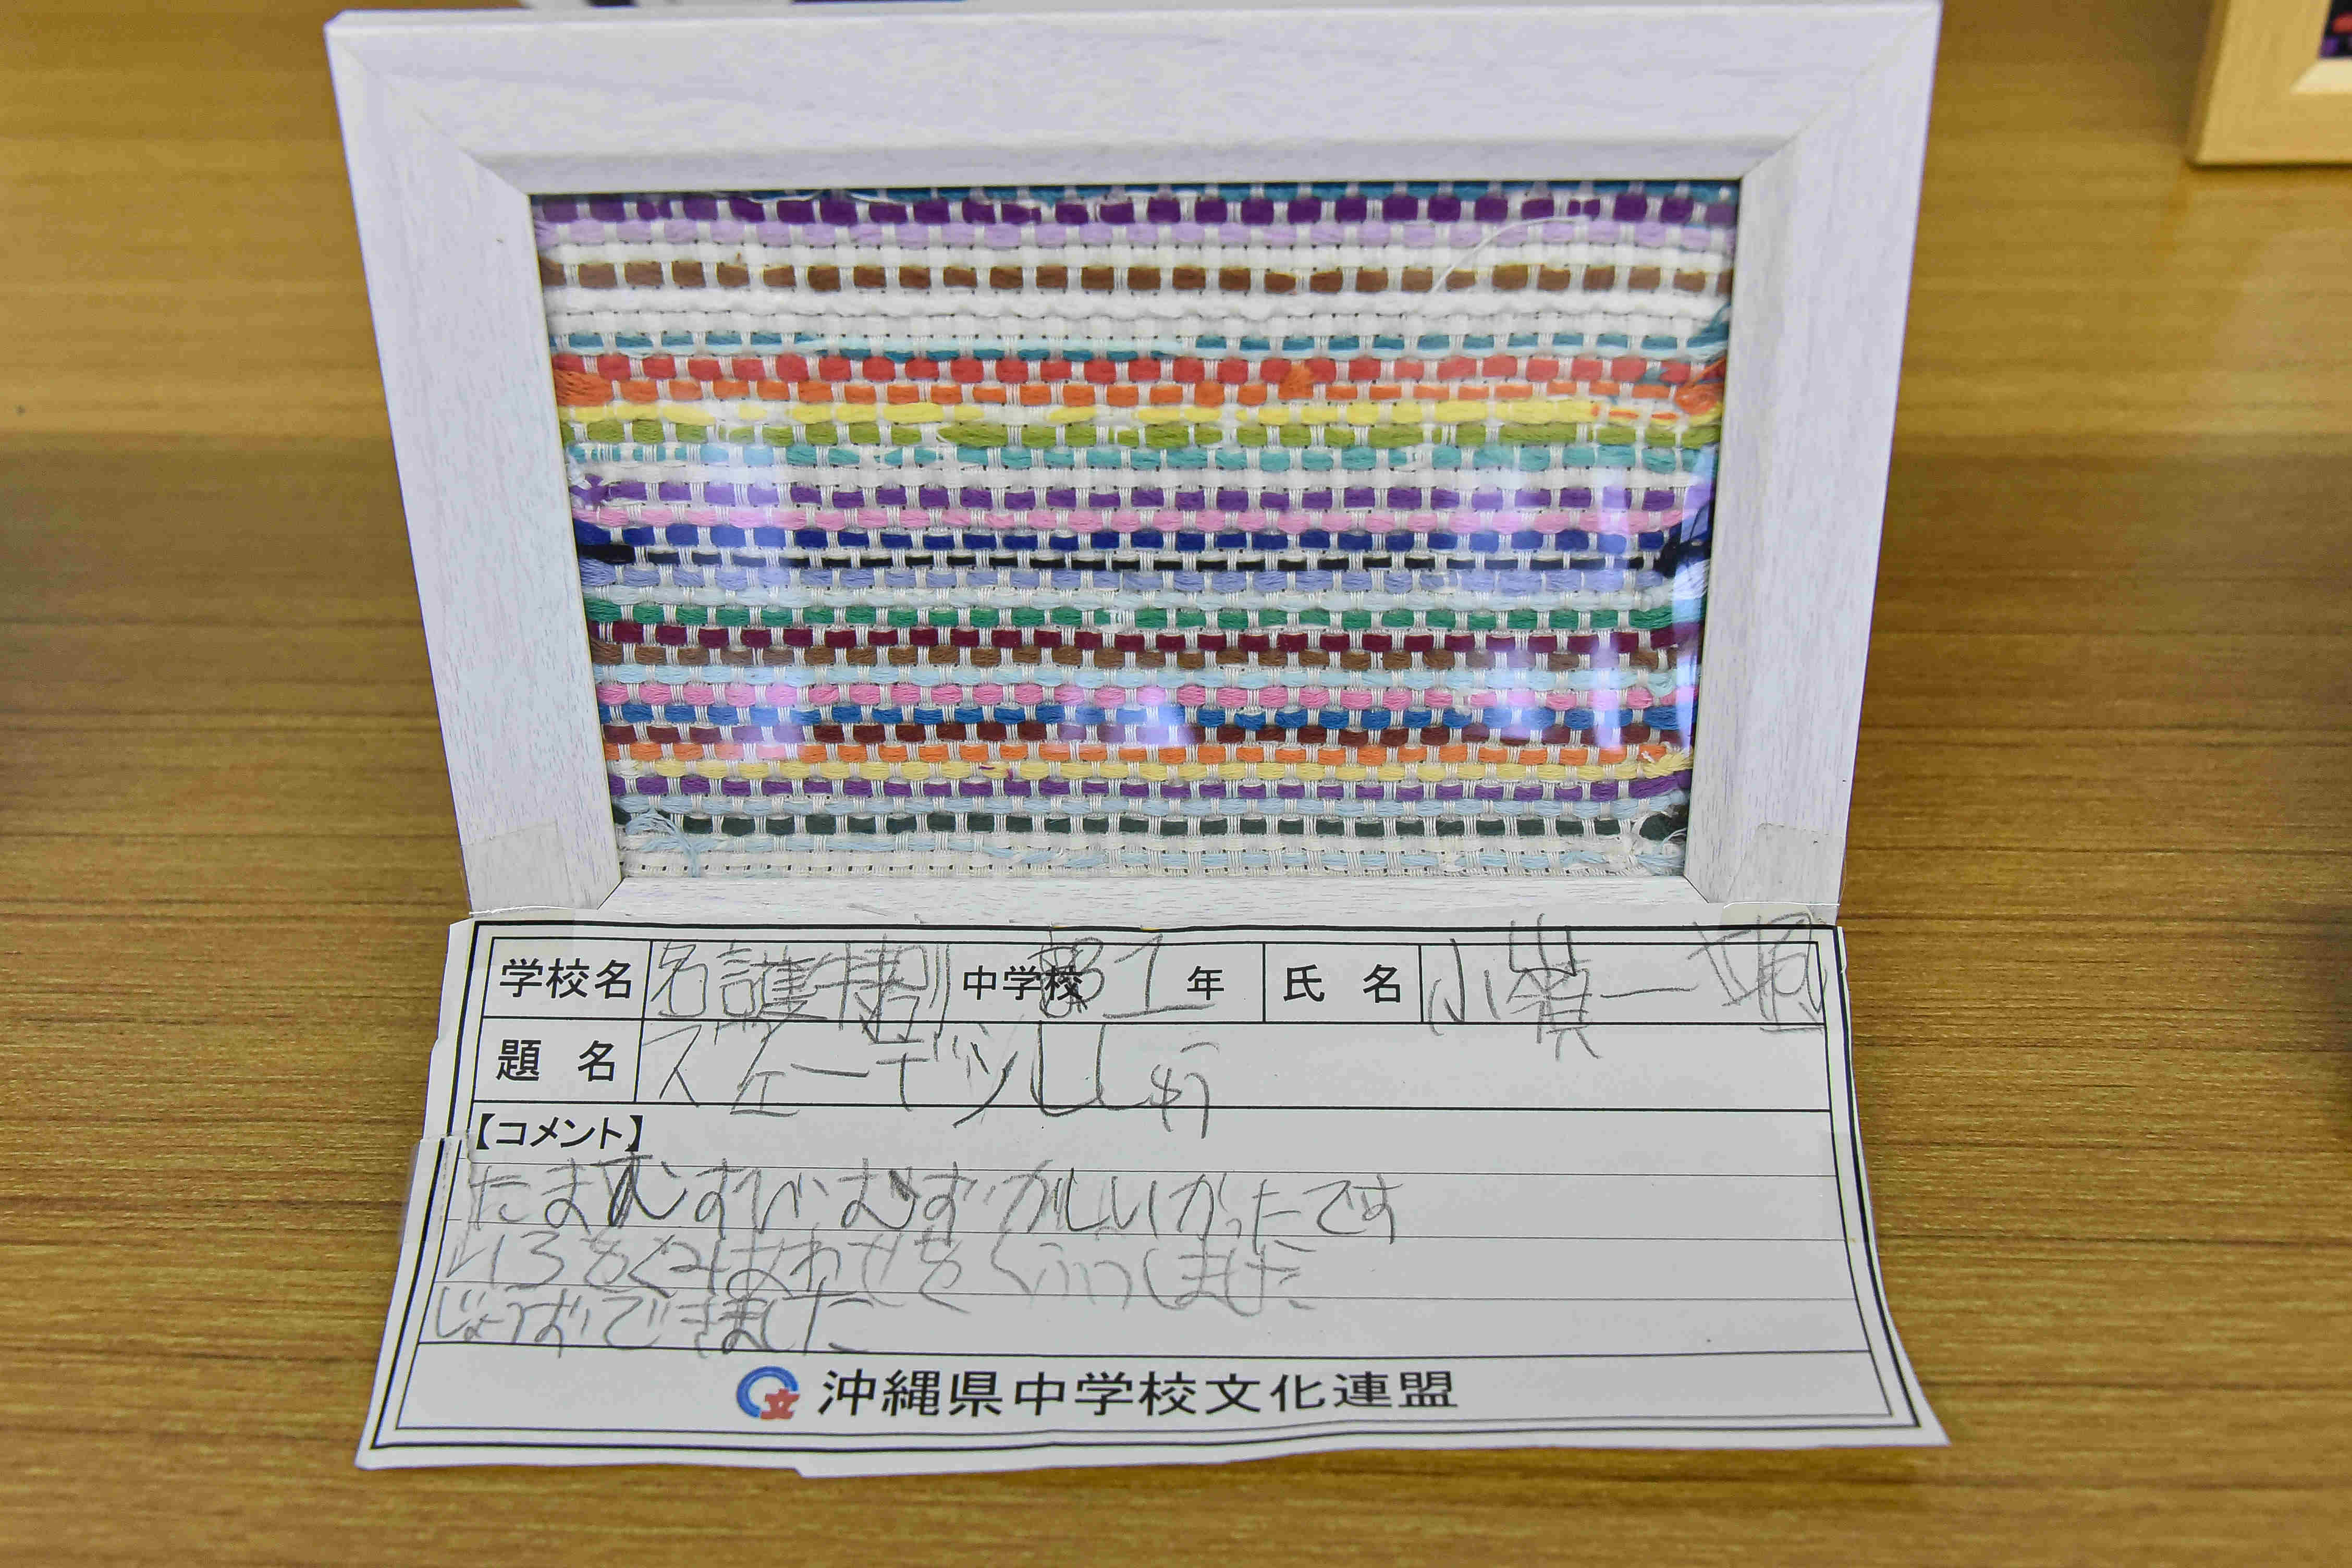 学校名 名護特別 中学校部1年 氏名 小濱一颯
題名 スウェーデンししゅう
【コメント】
たまむすびむずかしいかったです
いろをくみあわせをくふうしました
じょうずできました
沖縄県中学校文化連盟